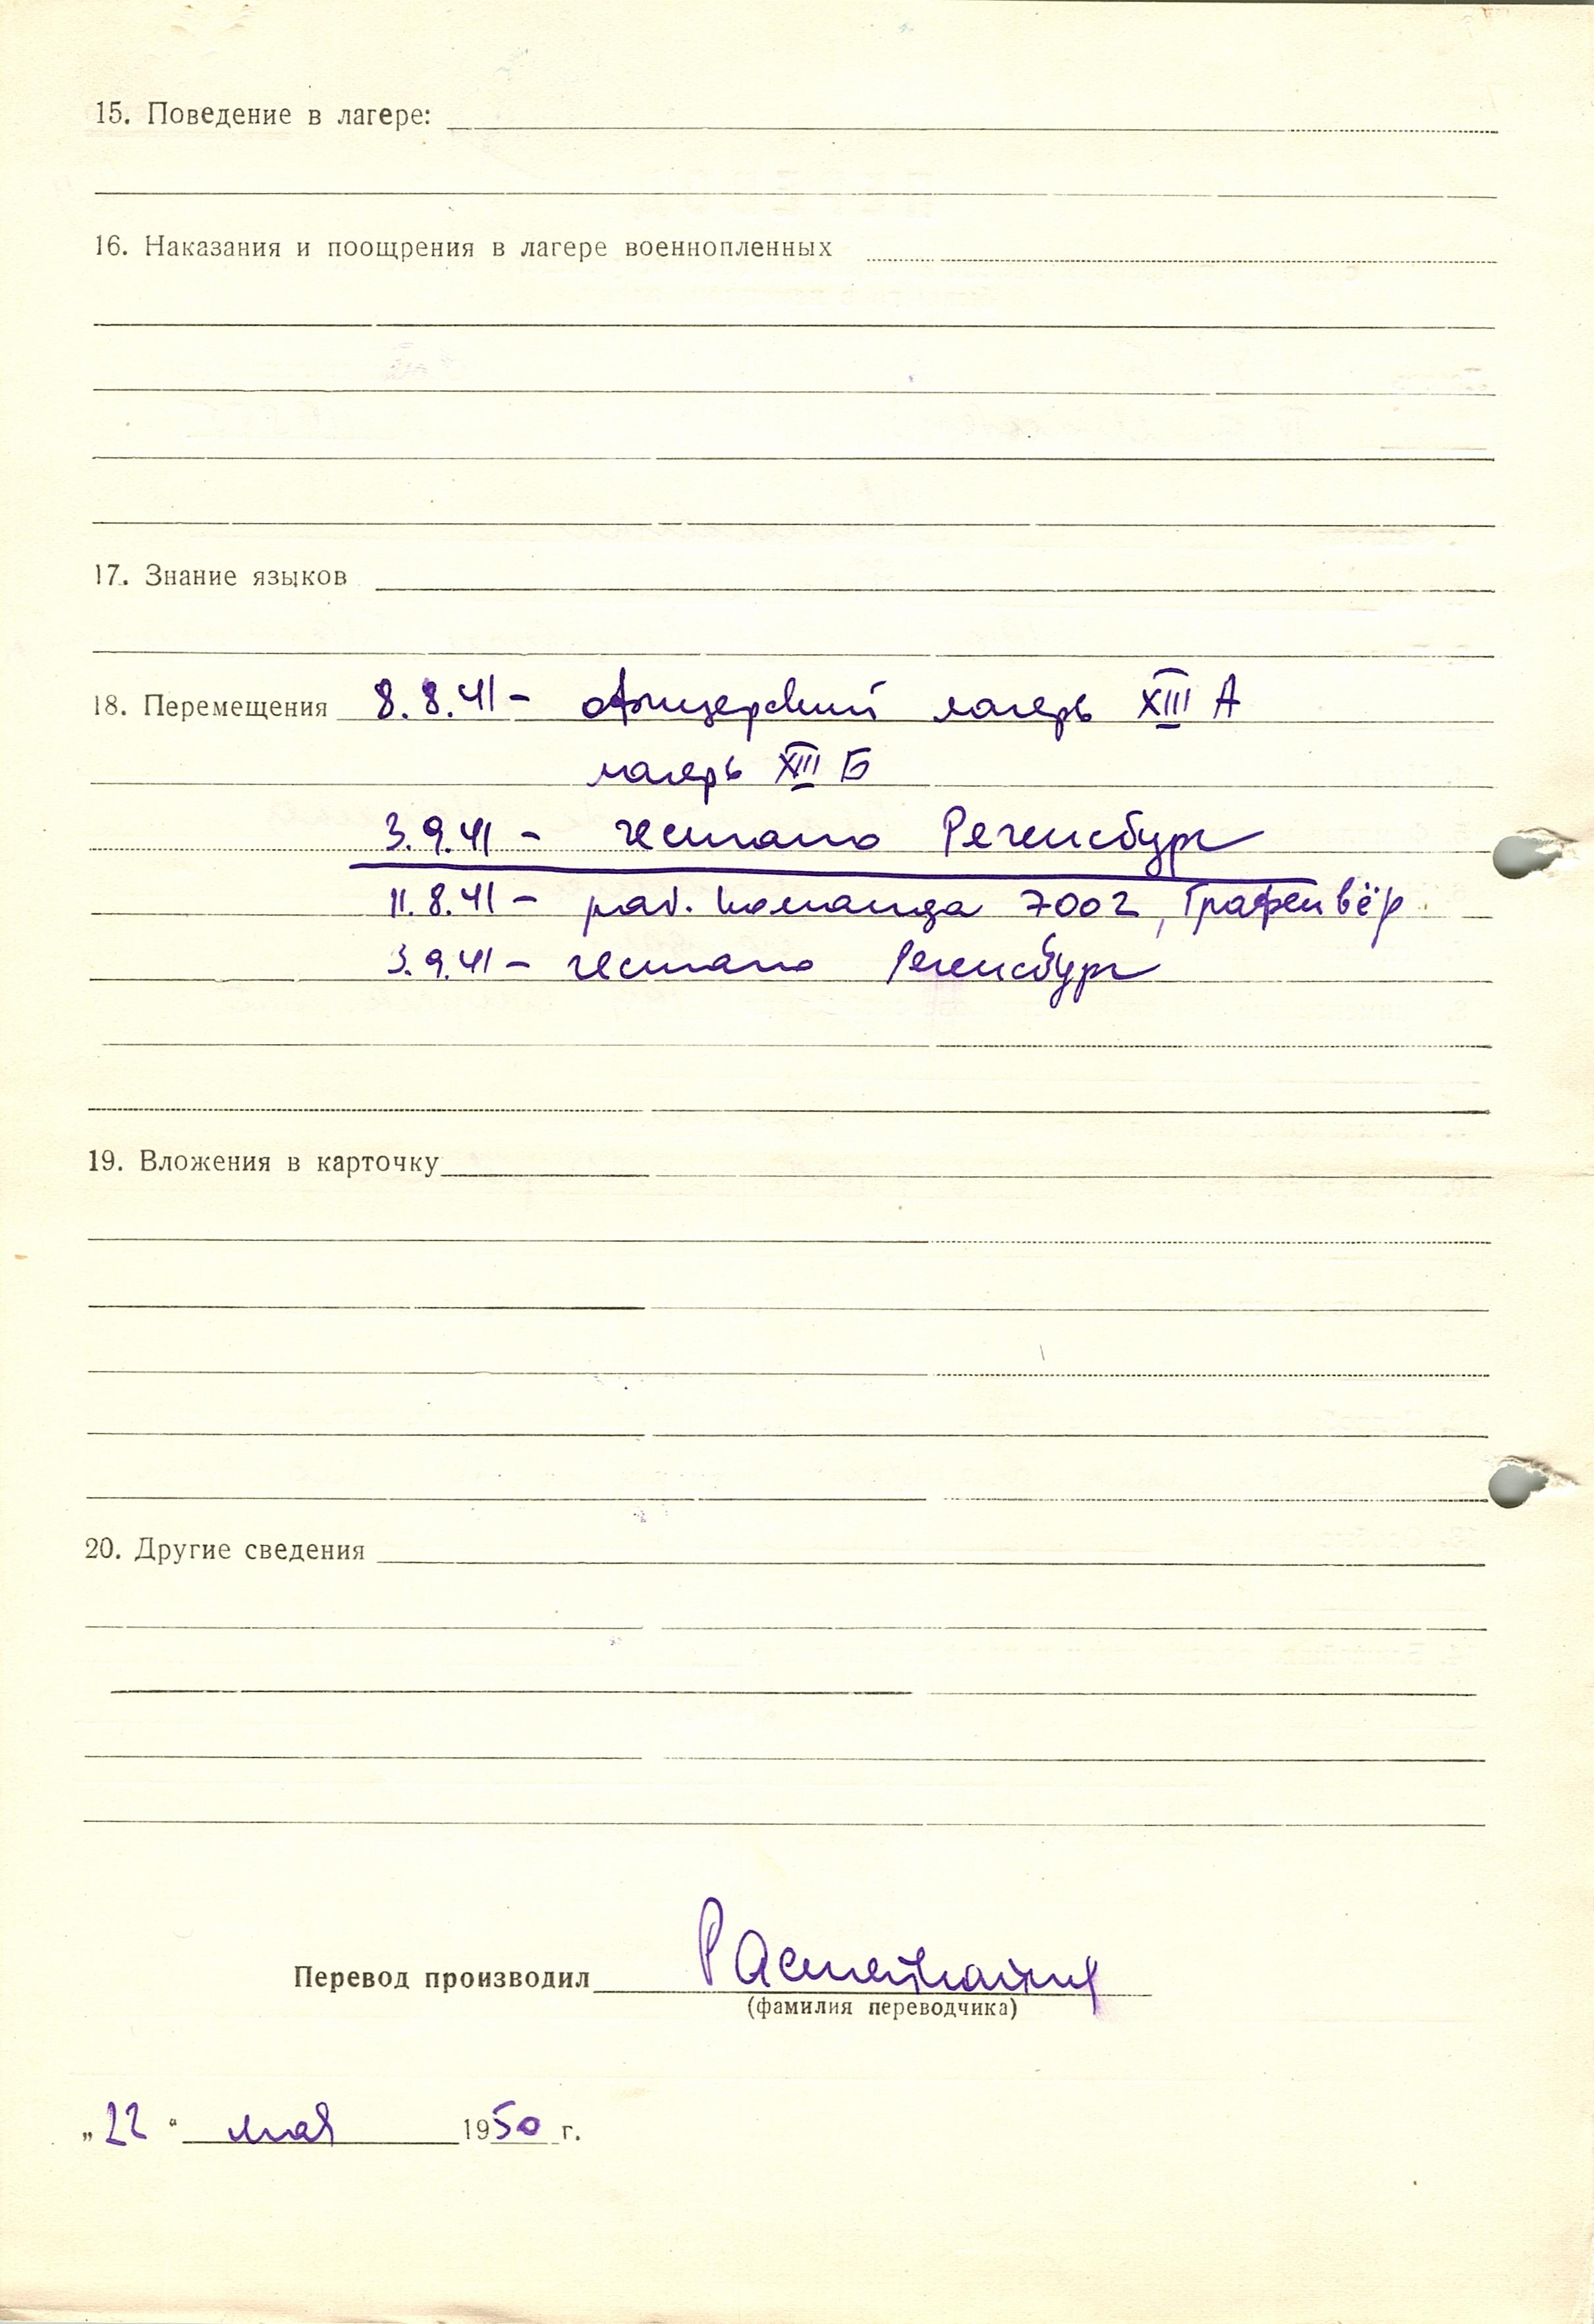 15. Поведение в лагере:
16. Наказания и поощрения в лагере военнопленных
17. Знание языков
18. Перемещения 8.8.41 - офицерский лагерь XIII А
лагерь XIII Б
3.9.41 - гестапо Регенсбург
11.8.41 - раб. команда 7002, Графенвёр
3.9.41 - гестапо Регенсбург
19. Вложения в карточку
20. Другие сведения
Перевод производил
(фамилия переводчика)
„22“ мая 1950 г.